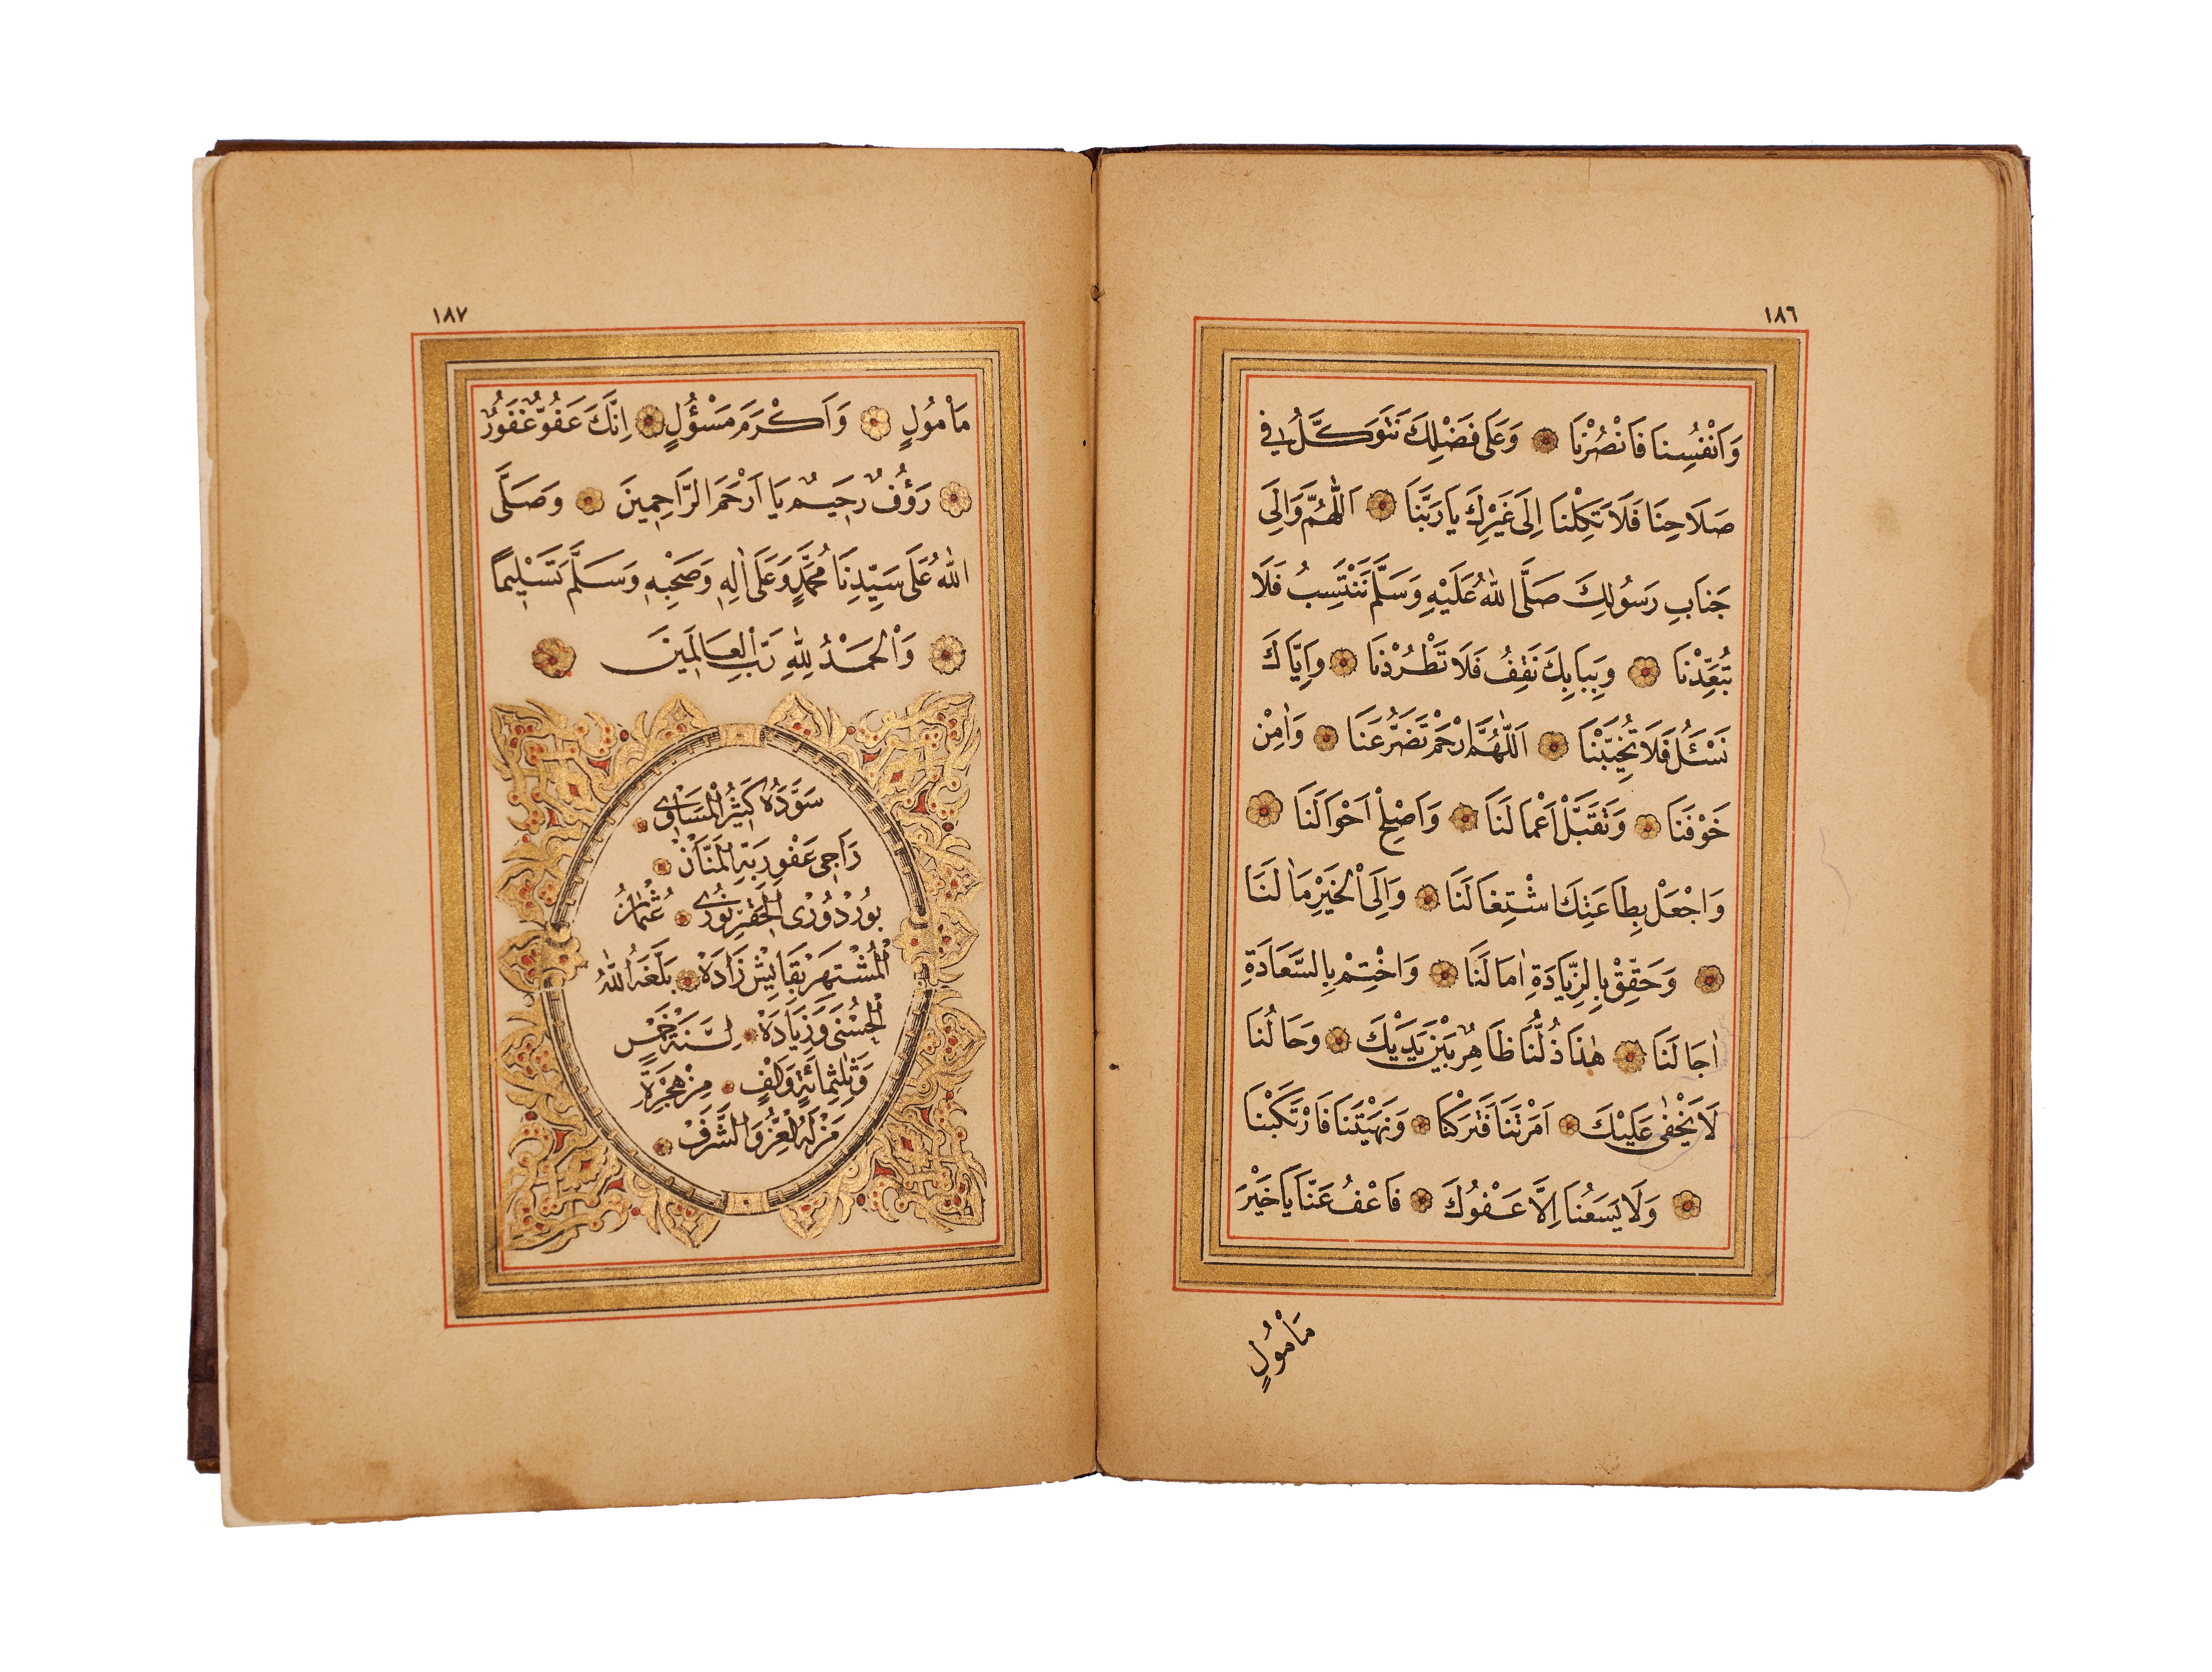 ١٨٦
وَاَنْفُسِنَا فَانْصُرْنَا وَعَلَى فَضْلِكَ نَتَوَكَّلُ فِى
صَلَاحِنَا فَلَا تَكِلْنَا اِلَى غَيْرِكَ يَا رَبَّنَا اَللّٰهُمَّ وَاِلَى
جَنَابِ رَسُولِكَ صَلَّى اللهُ عَلَيْهِ وَسَلَّمَ نَنْتَسِبُ فَلَا
تُبَعِّدْنَا وَبِبَابِكَ نَقِفُ فَلَا تَطْرُدْنَا وَاِيَّاكَ
نَسْـَٔلُ فَلَا تُخَيِّبْنَا اَللّٰهُمَّ ارْحَمْ تَضَرُّعَنَا وَاٰمِنْ
خَوْفَنَا وَتَقَبَّلْ اَعْمَالَنَا وَاَصْلِحْ اَحْوَالَنَا
وَاجْعَلْ بِطَاعَتِكَ اشْتِغَالَنَا وَاِلَى الْخَيْرِ مَاٰلَنَا
وَحَقِّقْ بِالزِّيَادَةِ اٰمَالَنَا وَاخْتِمْ بِالسَّعَادَةِ
اٰجَالَنَا هٰذَا ذُلُّنَا ظَاهِرٌ بَيْنَ يَدَيْكَ وَحَالُنَا
لَا يَخْفٰى عَلَيْكَ اَمَرْتَنَا فَتَرَكْنَا وَنَهَيْتَنَا فَارْتَكَبْنَا
وَلَا يَسَعُنَا اِلَّا عَفْوُكَ فَاعْفُ عَنَّا يَا خَيْرَ
مَأْمُولٍ
١٨٧
مَأْمُولٍ وَاَكْرَمَ مَسْؤُلٍ اِنَّكَ عَفُوٌّ غَفُورٌ
رَؤُفٌ رَحِيمٌ يَا اَرْحَمَ الرَّاحِمِينَ وَصَلَّى
اللهُ عَلَى سَيِّدِنَا مُحَمَّدٍ وَعَلَى اٰلِهِ وَصَحْبِهِ وَسَلَّمَ تَسْلِيمًا
وَالْحَمْدُ لِلّٰهِ رَبِّ الْعَالَمِينَ
سَوَّدَهُ كَثِيرُ الْمَسَاوِى
رَاجِى عَفْوِ رَبِّهِ الْمَنَّانْ
بُورْدُورْى الْحَقِيرْ نُورِى عُثْمَانُ
الْمُشْتَهَرْ بِقَايِشْ زَادَهْ بَلَّغَهُ اللهُ
الْحُسْنَى وَزِيَادَهْ لِسَنَةِ خَمْسٍ
وَثَلٰثِمِائَةٍ وَاَلْفٍ مِنْ هِجْرَةِ
مَنْ لَهُ الْعِزُّ وَالشَّرَفْ